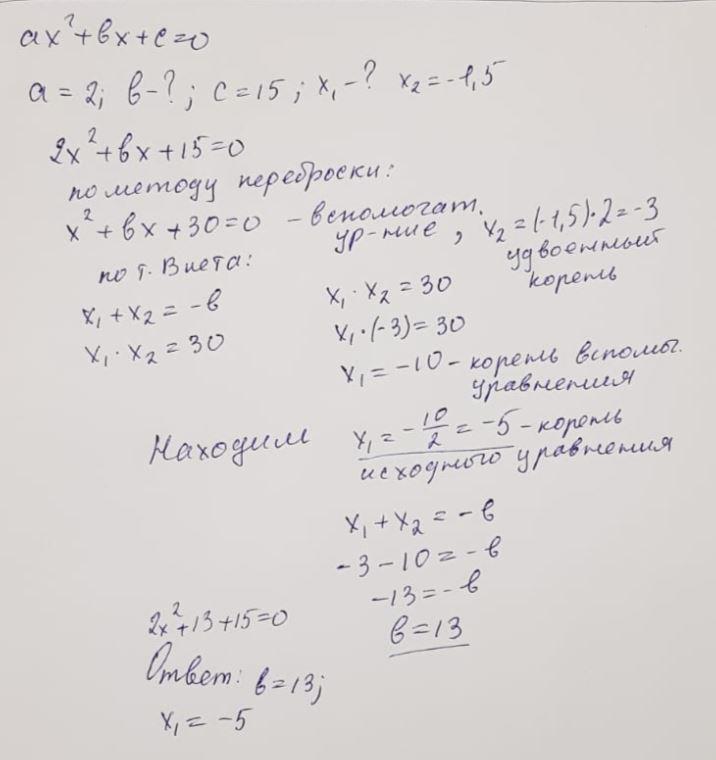 ax²+bx+c=0
a = 2; b-?; c=15; x₁-? x₂=-1,5
2x²+bx+15=0
по методу переброски:
x²+bx+30=0 - вспомогат.
ур-ние, x₂=(-1,5)·2=-3
удвоенный
корень
по т. Виета:
x₁+x₂=-b
x₁·x₂=30
x₁·x₂=30
x₁·(-3)=30
x₁=-10 - корень вспомог.
уравнения
Находим x₁=-10/2=-5 - корень
исходного уравнения
x₁+x₂=-b
-3-10=-b
-13=-b
b=13
2x²+13+15=0
Ответ: b=13;
x₁=-5